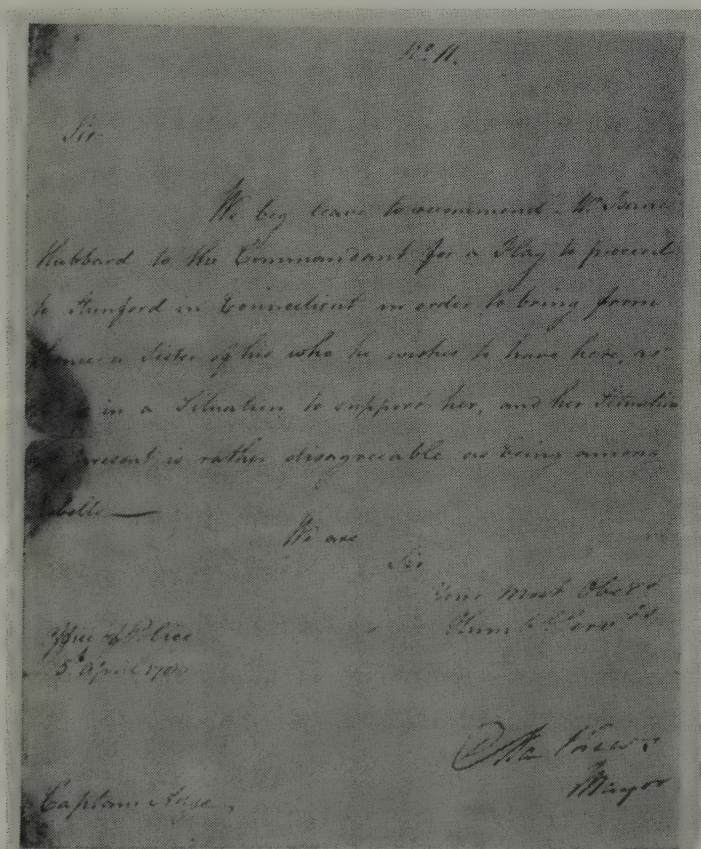 No. 11.
Sir
We beg leave to recommend Mr. Isaac
Hubbard to the Commandant for a Flag to proceed
to Stanford in Connecticut in order to bring from
a Sister of his who he wishes to have here, as
in a Situation to support her, and her Situation
present is rather disagreeable as being among
Rebells —
We are
Sir
Your Most Obedt
Hum
Office of Police
5th April 1780
D Mathews
Mayor
Captain